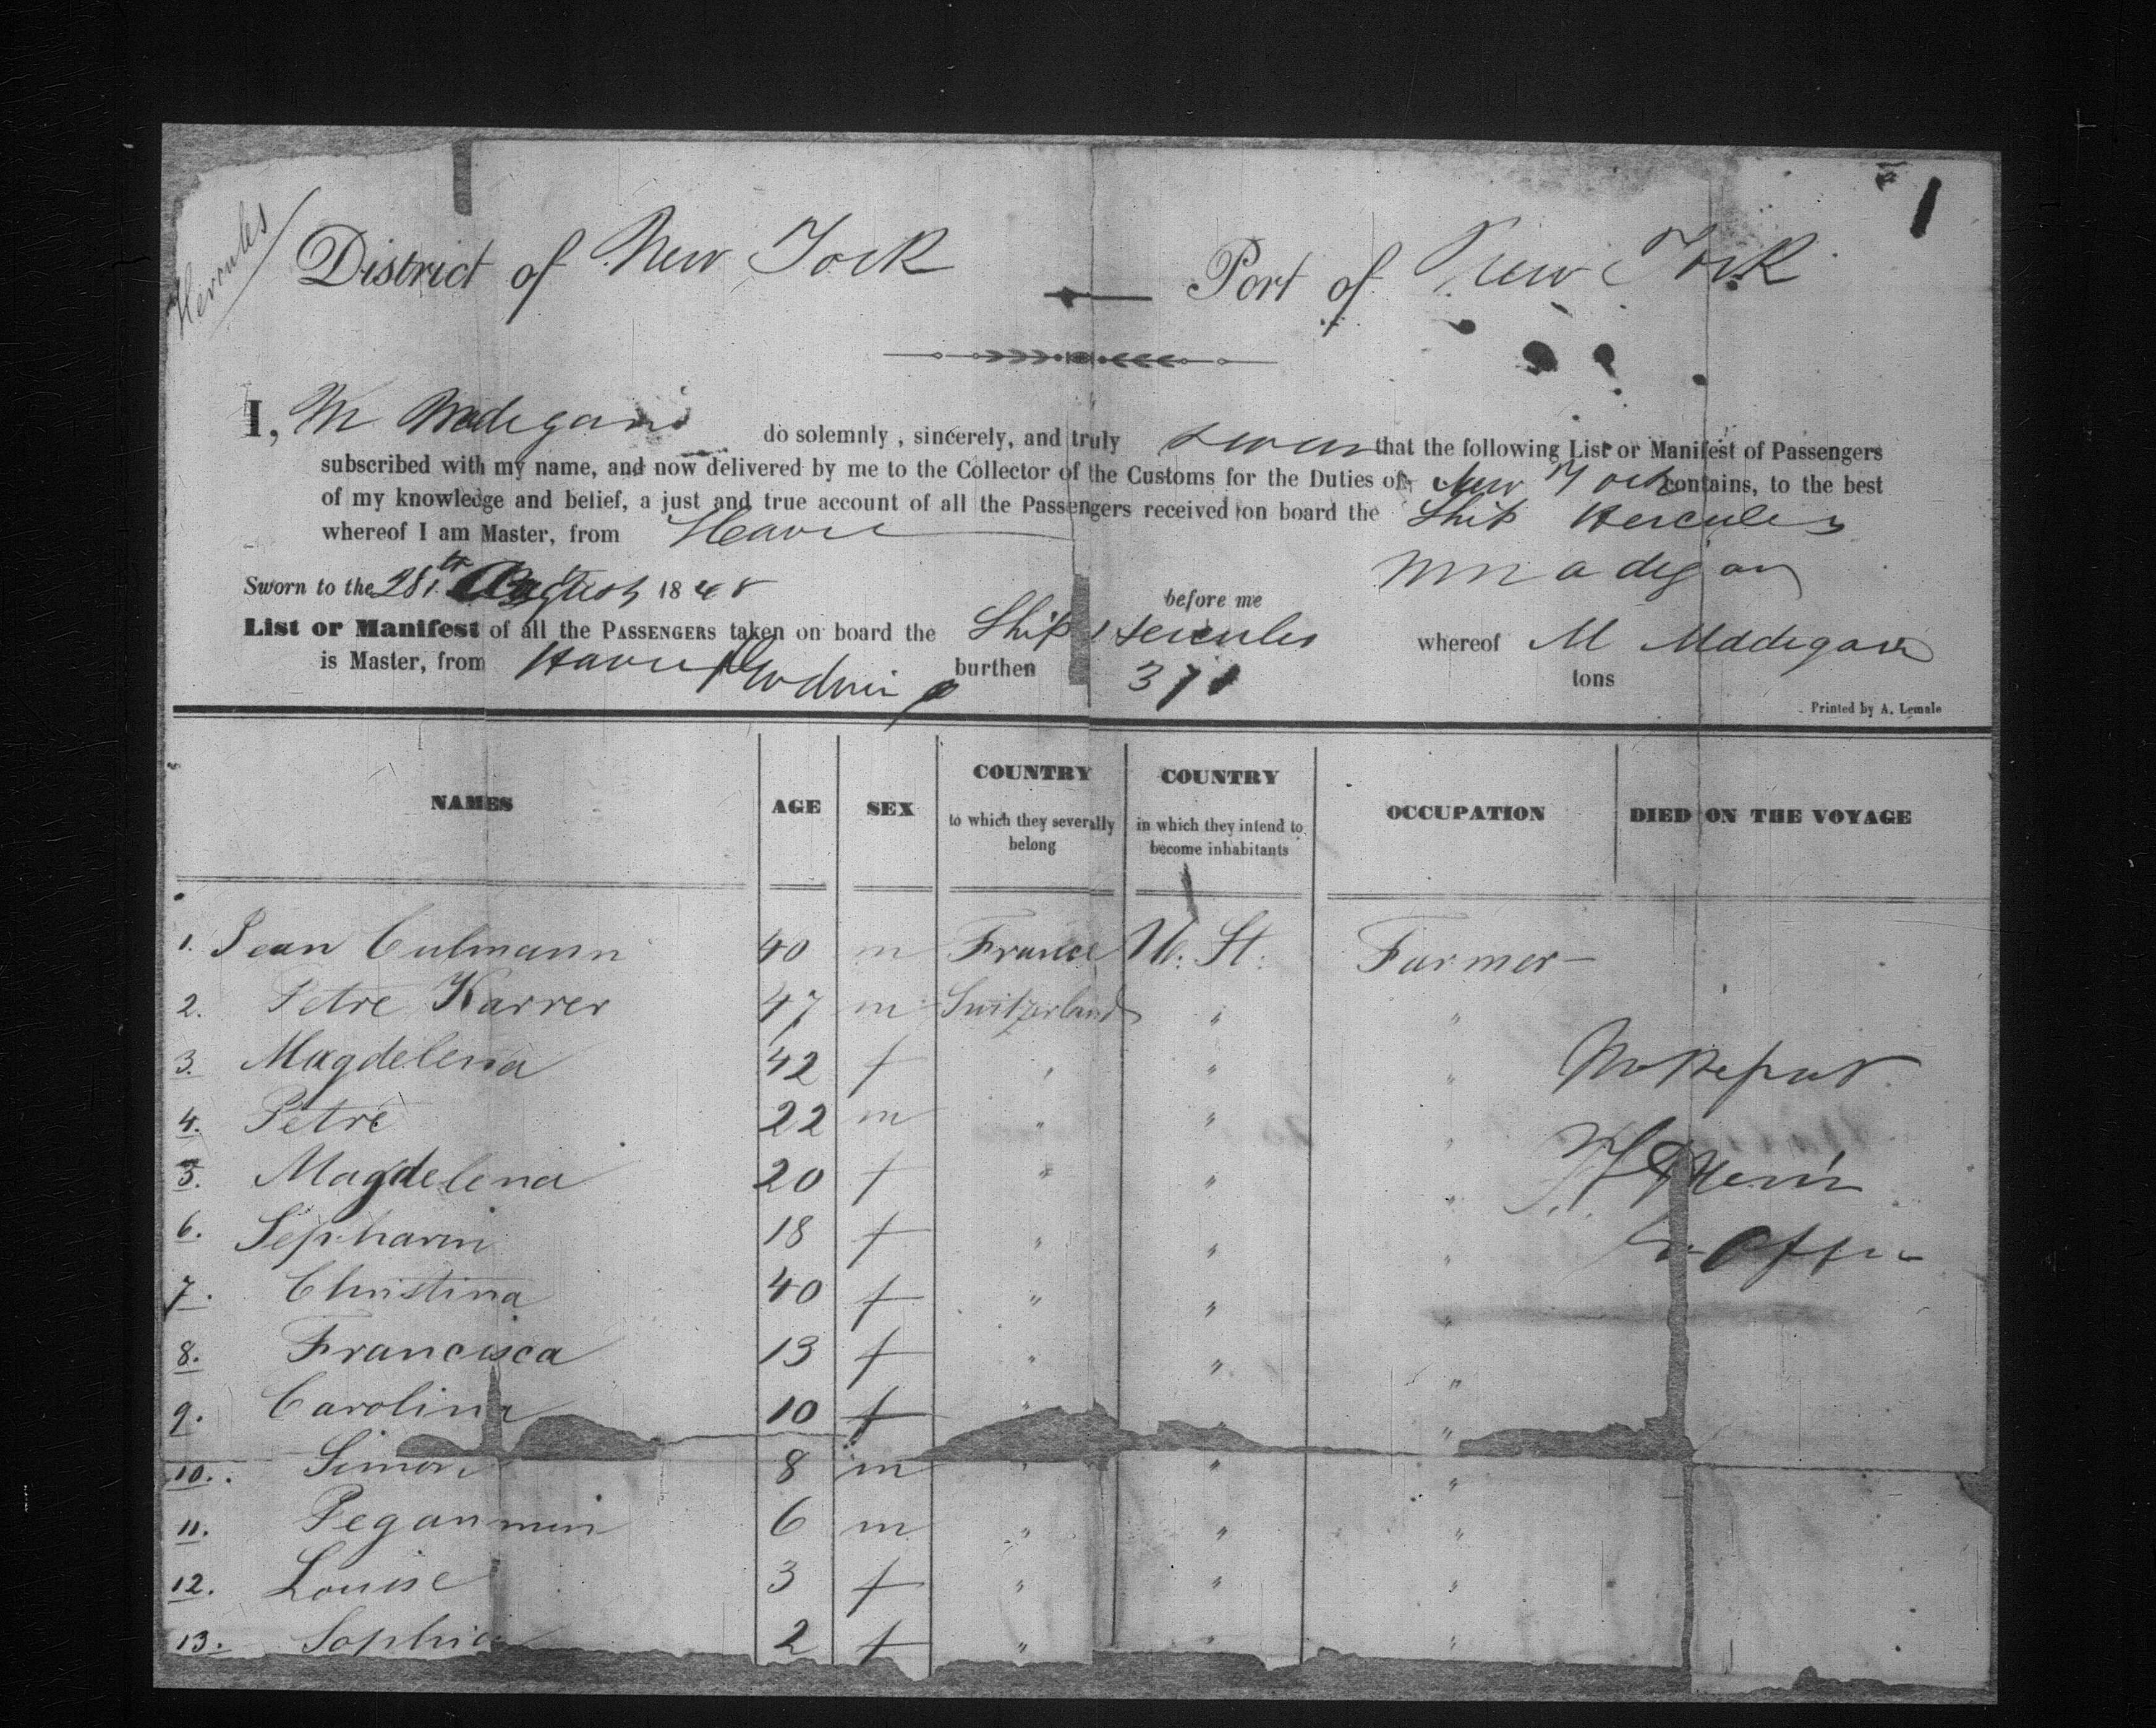 1
Hercules
District of New York Port of New York
I, M Madegan do solemnly, sincerely, and truly swear that the following List or Manifest of Passengers
subscribed with my name, and now delivered by me to the Collector of the Customs for the Duties of New York contains, to the best
of my knowledge and belief, a just and true account of all the Passengers received on board the Ship Hercules
whereof I am Master, from Havre
M Madegan
Sworn to the 28th August 1848 before me
List or Manifest of all the PASSENGERS taken on board the Ship Hercules whereof M Madegan
is Master, from Havre burthen 371 tons
Printed by A. Lemale
NAMES AGE SEX COUNTRY to which they severally belong COUNTRY in which they intend to become inhabitants OCCUPATION DIED ON THE VOYAGE
1. Jean Culmann 40 m France U. St. Farmer
2. Petre Karrer 47 m Switzerland " "
3. Magdelena 42 f " " "
4. Petre 22 m " " "
5. Magdelena 20 f " " "
6. Sepharin 18 f " " "
7. Christina 40 f " " "
8. Francisca 13 f " " "
9. Carolina 10 f " " "
10. Simon 8 m " " "
11. Peganmin 6 m " " "
12. Louise 3 f " " "
13. Sophie 2 f " " "